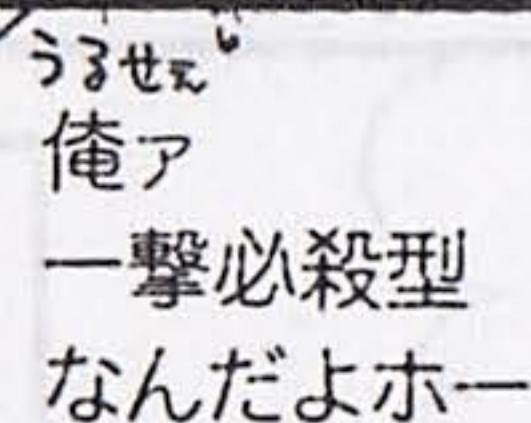 うるせぇ
俺ァ
一撃必殺型
なんだよホー